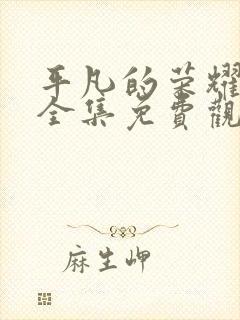 平凡的荣耀
全集免費觀
麻生岬